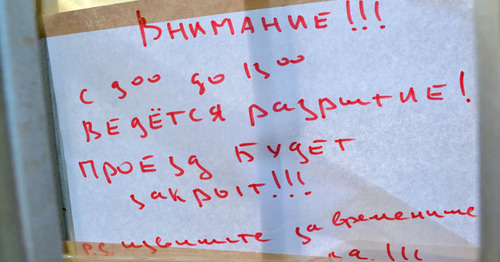 ВНИМАНИЕ!!!
С 9⁰⁰ до 13⁰⁰
ВЕДЁТСЯ разрытие!
ПРОЕЗД БУДЕТ
закрыт!!!
P.S. извините за временные